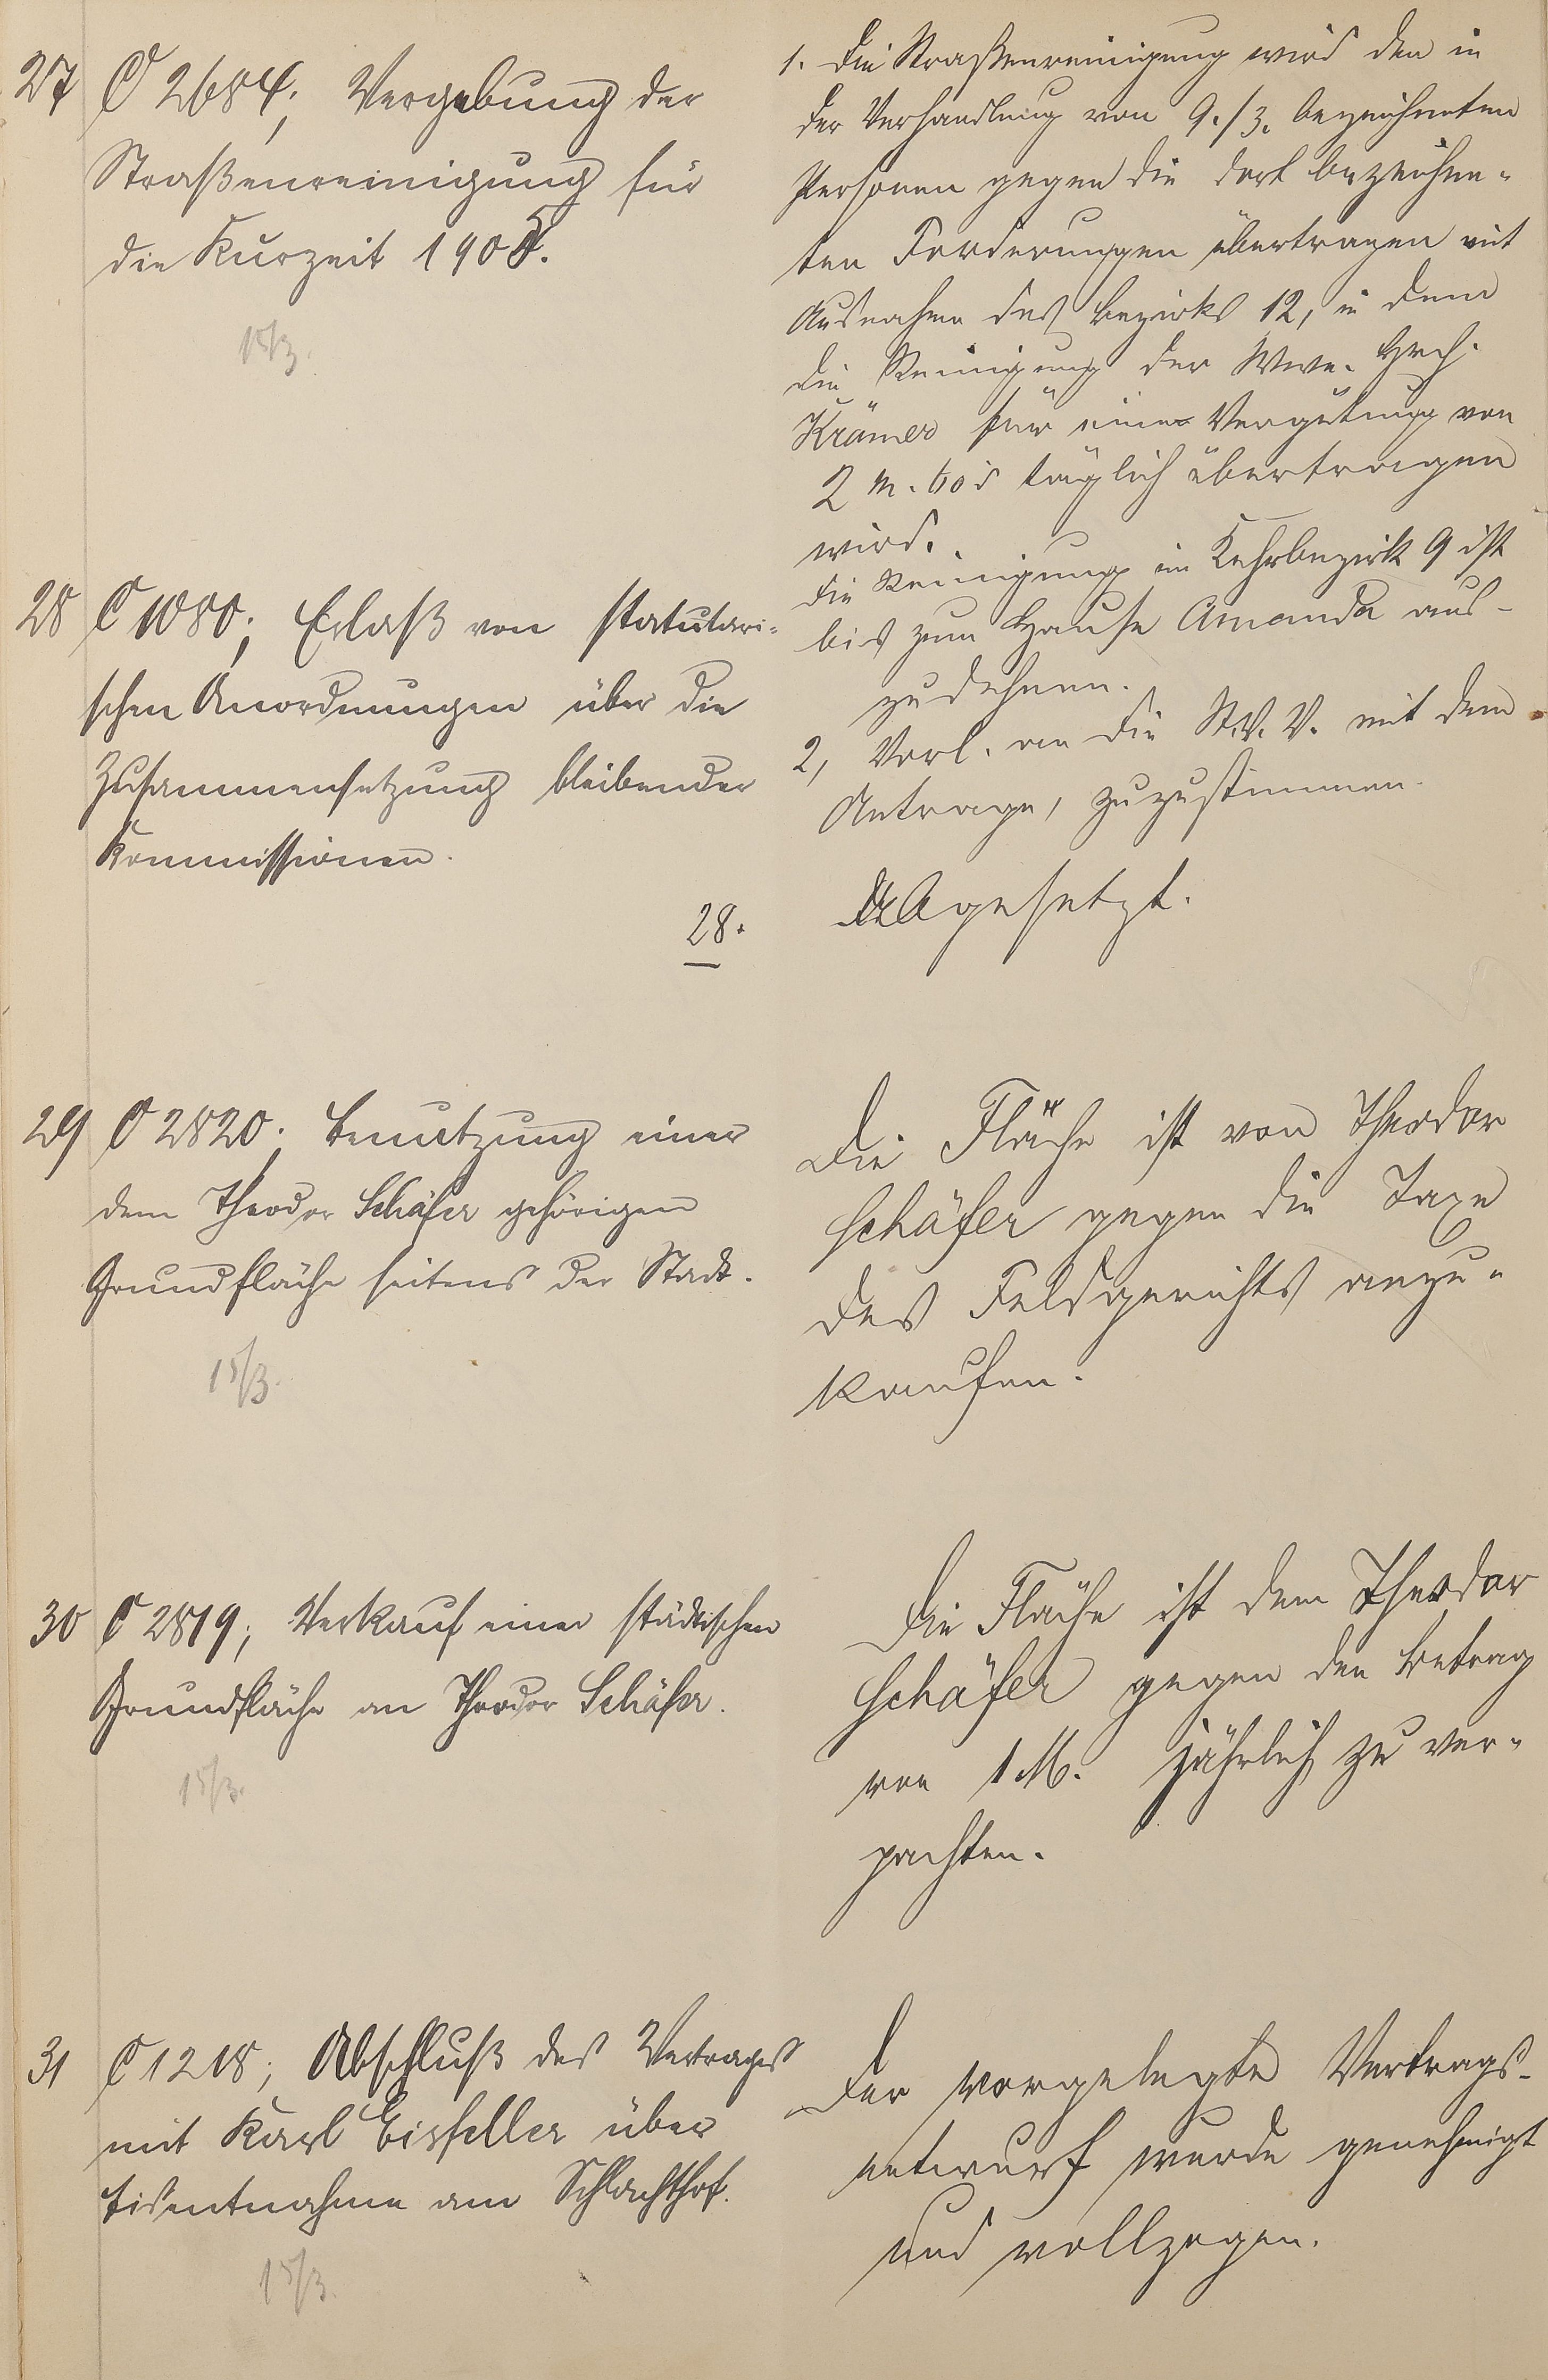 27 C 2684; Vergebung der
Straßenreinigung für
die Kurzeit 1905.
15/3.
1. Die Straßenreinigung wird den in
der Verhandlung von 9./3. bezeichneten
Personen gegen die dort bezeichne-
ten Forderungen übertragen mit
Ausnahme des Bezirks 12, in dem
die Reinigung der Wwe. Hrch.
Krämer für eine Vergütung von
2 M. 60 täglich übertragen
wird.
Die Reinigung im Kehrbezirk 9 ist
bis zum Hause Amanda aus-
zudehnen.
2, Vorl. an die St.V.V. mit dem
Antrage, zuzustimmen.
28 C 1080; Erlaß von statutari-
schen Anordnungen über die
Zusammensetzung bleibender
Kommissionen.
28.
Abgesetzt.
29 C 2820; Benutzung einer
dem Theodor Schäfer gehörigen
Grundfläche seitens der Stadt.
15/3.
Die Fläche ist von Theodor
Schäfer gegen die Taxe
des Feldgerichts anzu-
kaufen.
30 C 2819; Verkauf einer städtischen
Grundfläche an Theodor Schäfer.
15/3.
Die Fläche ist dem Theodor
Schäfer gegen den Betrag
von 1 M. jährlich zu ver-
pachten.
31 C 1218; Abschluß des Vertrages
mit Karl Eisfeller über
Eisentnahme am Schlachthof.
15/3.
Der vorgelegte Vertrags-
entwurf wurde genehmigt
und vollzogen.